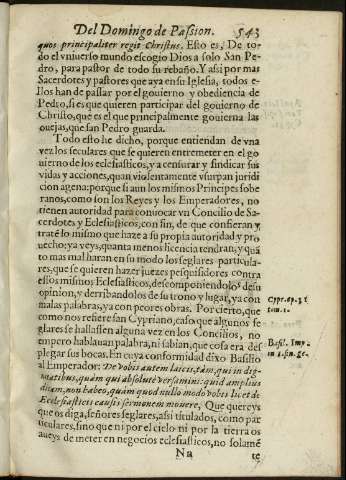 Del Domingo de Passion. 543
quos principaliter regit Christus. Esto es, De to-
do el vniuerso mundo escogio Dios a solo San Pe-
dro, para pastor de todo su rebaño. Y assi por mas
Sacerdotes y pastores que aya en su Iglesia, todos e-
llos han de passar por el gouierno y obediencia de
Pedro, si es que quieren participar del gouierno de
Christo, que es el que principalmente gouierna las
ouejas, que san Pedro guarda.
Todo esto he dicho, porque entiendan de vna
vez los seculares que se quieren entremeter en el go
uierno de los eclesiasticos, y a censurar y sindicar sus
vidas y acciones, quan violentamente vsurpan juridi
cion agena: porque si aun los mismos Principes sobe
ranos, como son los Reyes y los Emperadores, no
tienen autoridad para conuocar vn Concilio de Sa-
cerdotes y Eclesiasticos, con fin, de que confieran y
traté lo mismo que haze a su propia autoridad y pro
uecho; ya veys, quanta menos licencia tendran, y quã
to mas mal haran en su modo los seglares particula-
res, que se quieren hazer juezes pesquisidores contra
essos mismos Eclesiasticos, descomponiendolos de su
opinion, y derribandolos de su trono y lugar, ya con
malas palabras, ya con peores obras. Por cierto, que
como nos refiere san Cypriano, caso que algunos se
glares se hallassen alguna vez en los Concilios, no
empero hablauan palabra, ni sabian, que cosa era des
plegar sus bocas. En cuya conformidad dixo Basilio
al Emperador: De vobis autem laicis, tàm, qui in dig-
nitatibus, quàm qui absolutè versamini: quid amplius
dicam, non habeo, quàm quod nullo modo vobis licet de
Ecclesiasticis causis sermonem mouere. Que quereys
que os diga, señores seglares, assi titulados, como par
ticulares, sino que ni por el cielo ni por la tierra os
aueys de meter en negocios eclesiasticos, no solamē
Nn te
Cypr. ep. 31
tom. 1.
Basil. Imp.